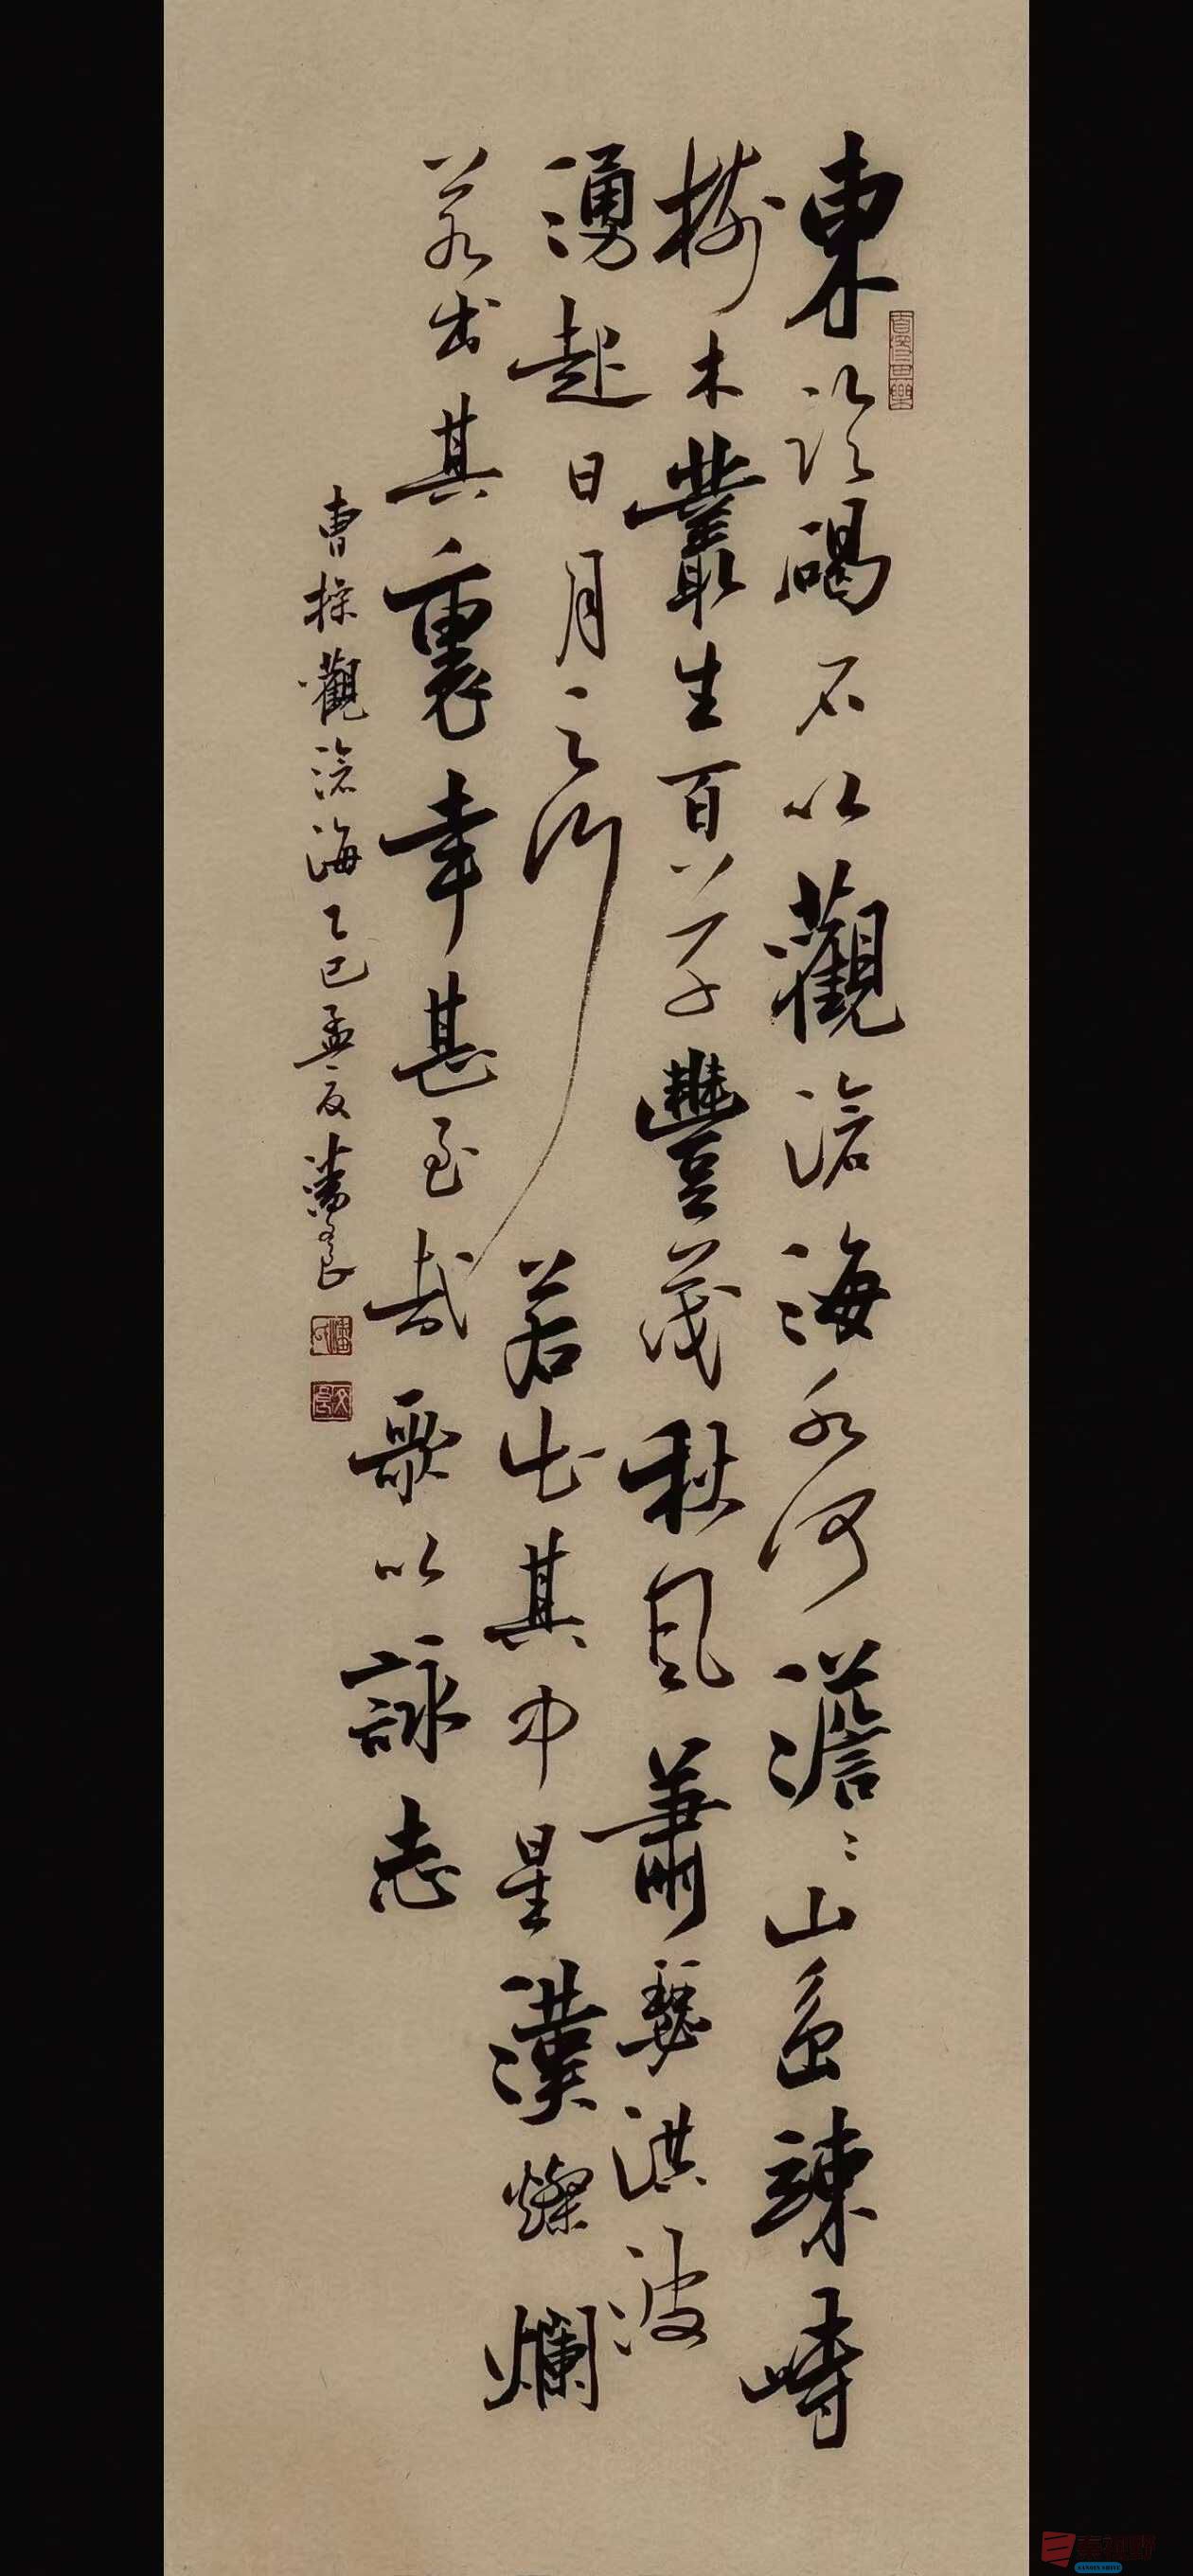 東臨碣石以觀滄海水何澹〻山島竦峙
樹木叢生百草豐茂秋風蕭瑟洪波
湧起日月之行若出其中星漢燦爛
若出其裏幸甚至哉歌以詠志
曹操觀滄海乙巳孟夏潘